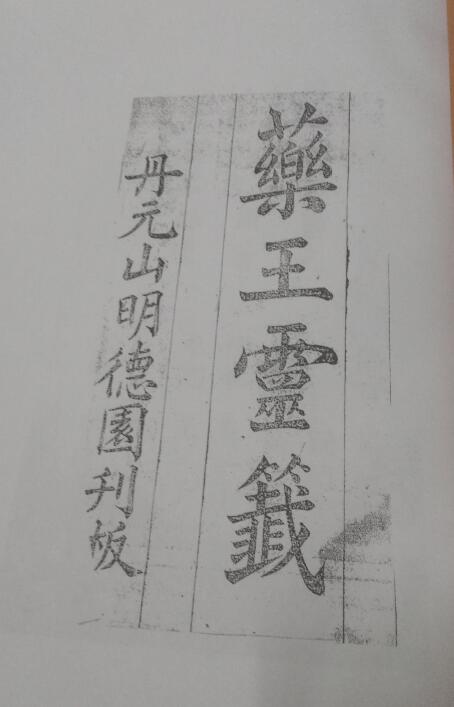 藥王靈籤
丹元山明德園刋板